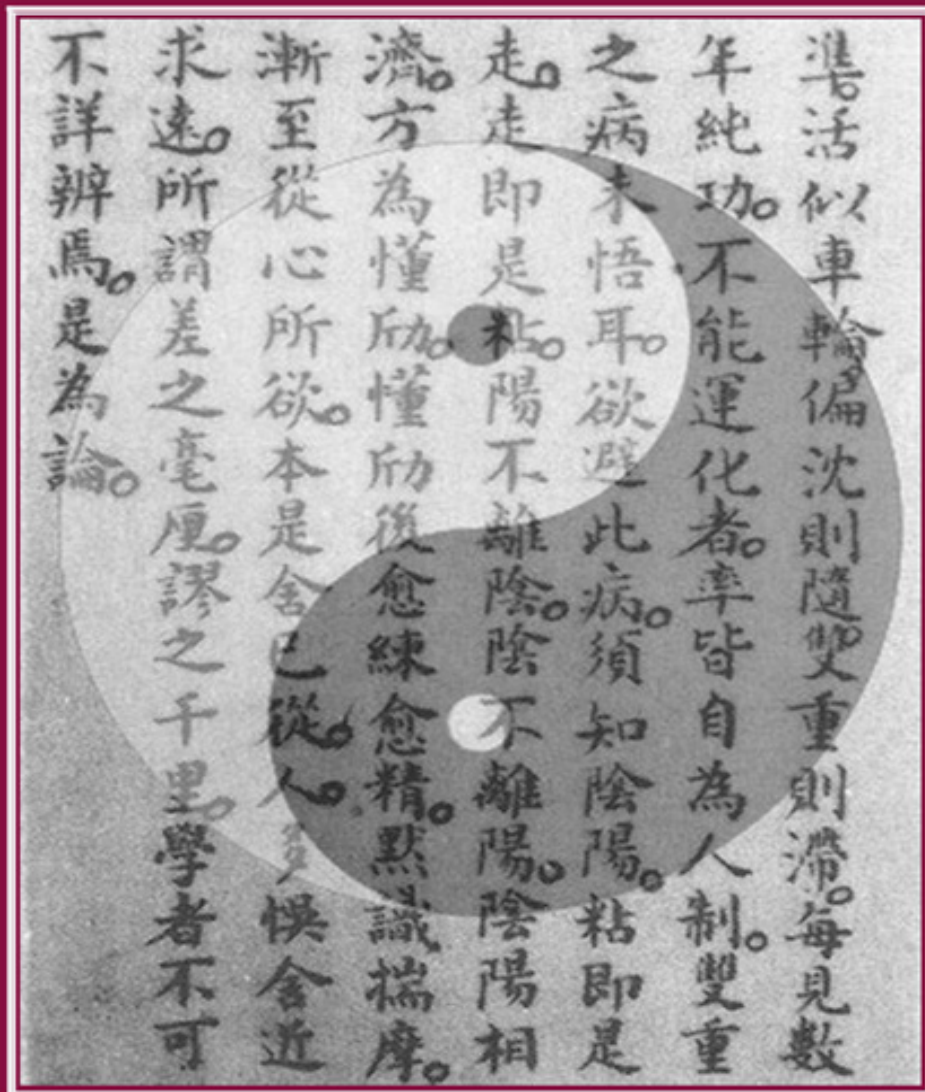 準。活似車輪。偏沈則隨。雙重則滯。每見數
年純功。不能運化者。率皆自為人制。雙重
之病未悟耳。欲避此病。須知陰陽。粘即是
走。走即是粘。陽不離陰。陰不離陽。陰陽相
濟。方為懂劤。懂劤後愈練愈精。默識揣摩。
漸至從心所欲。本是舍己從。人。多悞舍近
求遠。所謂差之毫厘。謬之千里。學者不可
不詳辨焉。是為論。